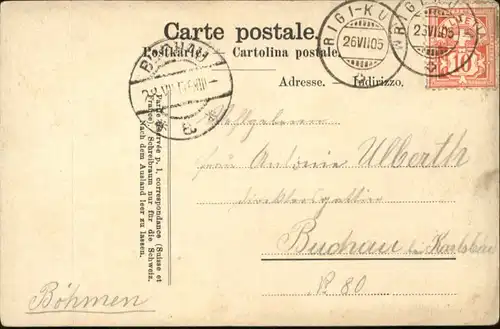 Carte postale.
Postkarte. Cartolina postale
Adresse. Indirizzo.
RIGI-KU
26 VII 05
RIGI-KU
26 VII 05
HELVETIA
10
BUCHAU
Partie réservée p. l. correspondance (Suisse et
France) Schreibraum nur für die Schweiz.
Nach dem Ausland leer zu lassen.
Frau Antonie Ulberth
Buchau bei Karlsbad
No 80.
Böhmen